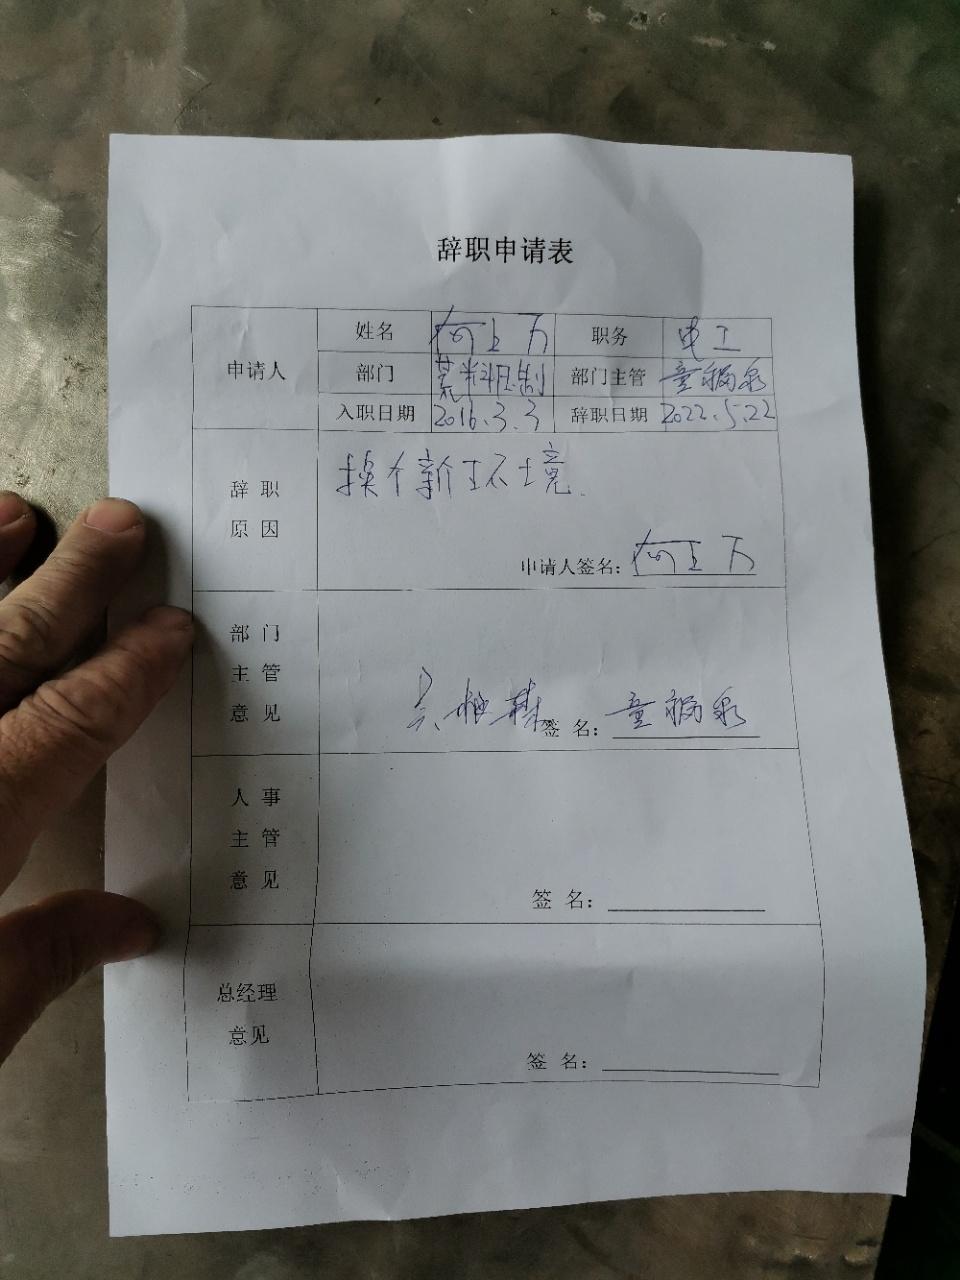 辞职申请表
申请人
姓名 何上万 职务 电工
部门 部门主管
入职日期 2016.3.3 辞职日期 2022.5.22
辞职
原因
换个新环境.
申请人签名: 何上万
部门
主管
意见
签名:
人事
主管
意见
签名:
总经理
意见
签名: